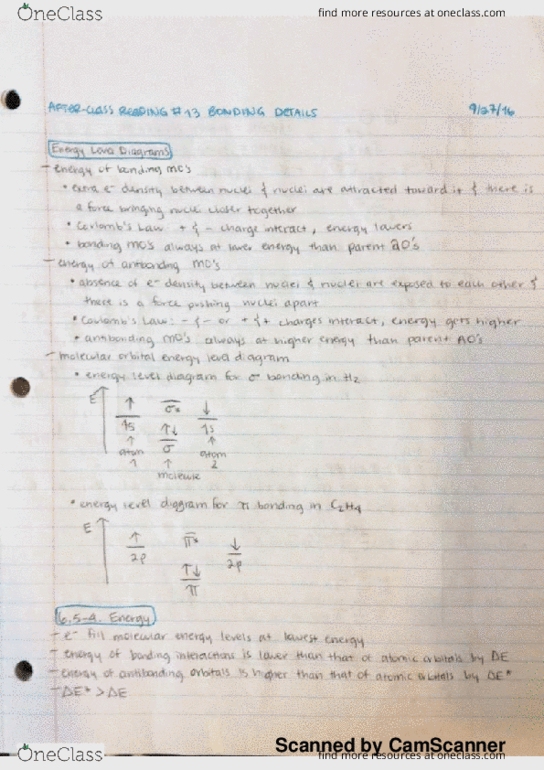 OneClass
find more resources at oneclass.com
AFTER-CLASS READING #13 BONDING DETAILS 9/27/16
Energy Level Diagrams
- energy of bonding MO's
• extra e⁻ density between nuclei & nuclei are attracted toward it & there is
a force bringing nuclei closer together
• Coulomb's Law: + & - charge interact, energy lowers
• bonding MO's always at lower energy than parent AO's
- energy of antibonding MO's
• absence of e⁻ density between nuclei & nuclei are exposed to each other &
there is a force pushing nuclei apart
• Coulomb's Law: - & - or + & + charges interact, energy gets higher
• antibonding MO's always at higher energy than parent AO's
- molecular orbital energy level diagram
• energy level diagram for σ bonding in H2
E ↑ σ* ↓
1s ↑↓ 1s
↑ σ ↑
atom ↑ atom
1 molecule 2
• energy level diagram for π bonding in C2H4
E ↑ π* ↓
2p 2p
↑↓
π
6.5-A. Energy
- e⁻ fill molecular energy levels at lowest energy
- energy of bonding interactions is lower than that of atomic orbitals by ΔE
- energy of antibonding orbitals is higher than that of atomic orbitals by ΔE*
- ΔE* > ΔE
Scanned by CamScanner
OneClass
find more resources at oneclass.com